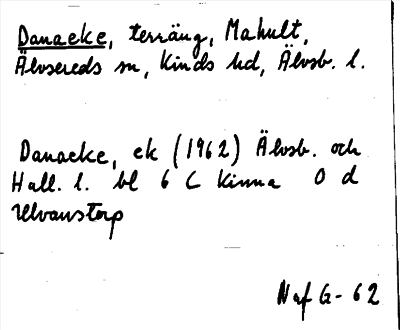 Danaeke, terräng, Mahult,
Älvsereds sn, Kinds hd, Älvsb. l.
Danaeke, ek (1962) Älvsb. och
Hall. l. bl 6 C Kinna 0 d
Ulvanstorp
Naf G-62